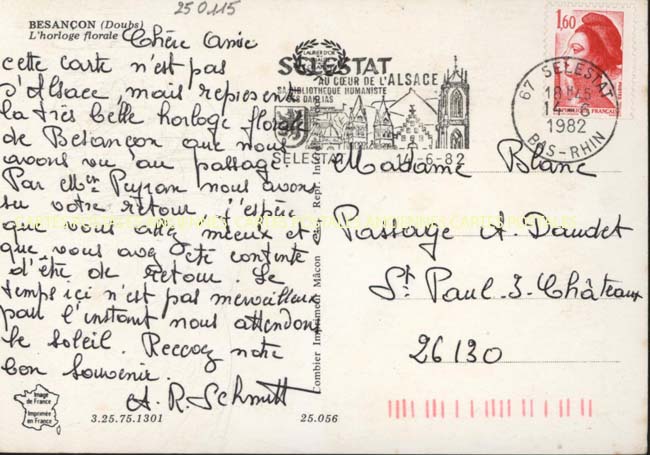 25 0115
BESANÇON (Doubs)
L'horloge florale
Chère Amie
cette carte n'est pas
d'Alsace, mais represente
la très belle horloge florale
de Besançon que nous
avons vu au passage.
Par Men Peyran nous avons
su votre retour. J'espère
que vous allez mieux et
que vous avez été contente
d'être de retour. Le
temps ici n'est pas merveilleux
pour l'instant nous attendons
le soleil. Recevez notre
bon souvenir.
A. R. Schmitt
Image
de France
Imprimée
en France
3.25.75.1301
25.056
Combier Imprimeur Mâcon
Repr. Inter
LAURIER D'OR
SELESTAT
AU CŒUR DE L'ALSACE
SA BIBLIOTHEQUE HUMANISTE
SES DAHLIAS
SELESTAT 14-6-82
67 SELESTAT
18H45
14-6
1982
BAS-RHIN
1,60
FRANÇAISE
Madame Blanc
Passage A. Daudet
St Paul-3-Châteaux
26130